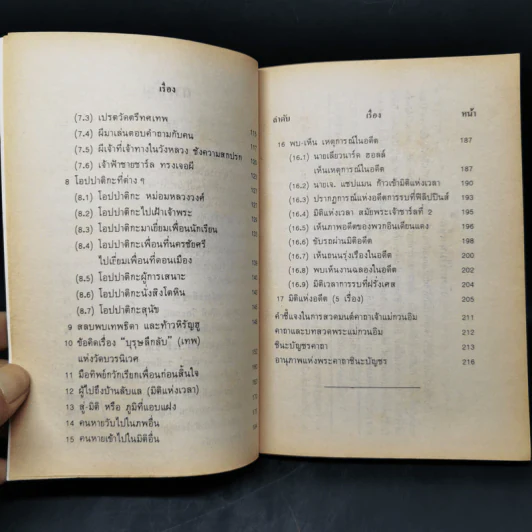 เรื่อง
(7.3) เปรตวัดตรีทศเทพ
(7.4) ผีมาเล่นตอบคำถามกับคน
(7.5) ผีเจ้าที่เจ้าทางในวังหลวง ชังความสกปรก
(7.6) เจ้าฟ้าชายชาร์ล ทรงเจอผี
8 โอปปาติกะที่ต่าง ๆ
(8.1) โอปปาติกะ หม่อมหลวงวงศ์
(8.2) โอปปาติกะไปเฝ้าเจ้าพระ
(8.3) โอปปาติกะมาเยี่ยมเพื่อนนักเรียน
(8.4) โอปปาติกะเพื่อนที่นครชัยศรี
ไปเยี่ยมเพื่อนที่ดอนเมือง
(8.5) โอปปาติกะผู้การเสนาะ
(8.6) โอปปาติกะนั่งสิงโตหิน
(8.7) โอปปาติกะสุนัข
9 สลบพบเทพธิดา และท้าวหิรัญฮู
10 ข้อคิดเรื่อง "บุรุษลึกลับ" (เทพ)
แห่งวัดบวรนิเวศ
11 มือทิพย์กวักเรียกเพื่อนก่อนสิ้นใจ
12 ผู้ไปถึงบ้านลับแล (มิติแห่งเวลา)
13 สู่-มิติ หรือ ภูมิที่แอบแฝง
14 คนหายวับไปในภพอื่น
15 คนหายเข้าไปในมิติอื่น
ลำดับ เรื่อง หน้า
16 พบ-เห็น เหตุการณ์ในอดีต 187
(16.1) นายเลียวนาร์ด ฮอลล์
เห็นเหตุการณ์ในอดีต 187
(16.2) นายเจ. แชปแมน ก้าวเข้ามิติแห่งเวลา 190
(16.3) ปรากฏการณ์แห่งอดีตการรบที่ฟิลิปปินส์ 193
(16.4) มิติแห่งเวลา สมัยพระเจ้าชาร์ลที่ 2 194
(16.5) เห็นภาพอดีตของพวกอินเดียนแดง 197
(16.6) ขับรถผ่านมิติอดีต 198
(16.7) เห็นถนนรุ่งเรืองในอดีต 200
(16.8) พบเห็นงานฉลองในอดีต 202
(16.9) มิติเวลาการรบที่ฝรั่งเศส 204
17 มิติแห่งอดีต (5 เรื่อง) 205
คำชี้แจงในการสวดมนต์คาถาเจ้าแม่กวนอิม 211
คาถาและบทสวดพระแม่กวนอิม 212
ชินะบัญชรคาถา 213
อานุภาพแห่งพระคาถาชินะบัญชร 216